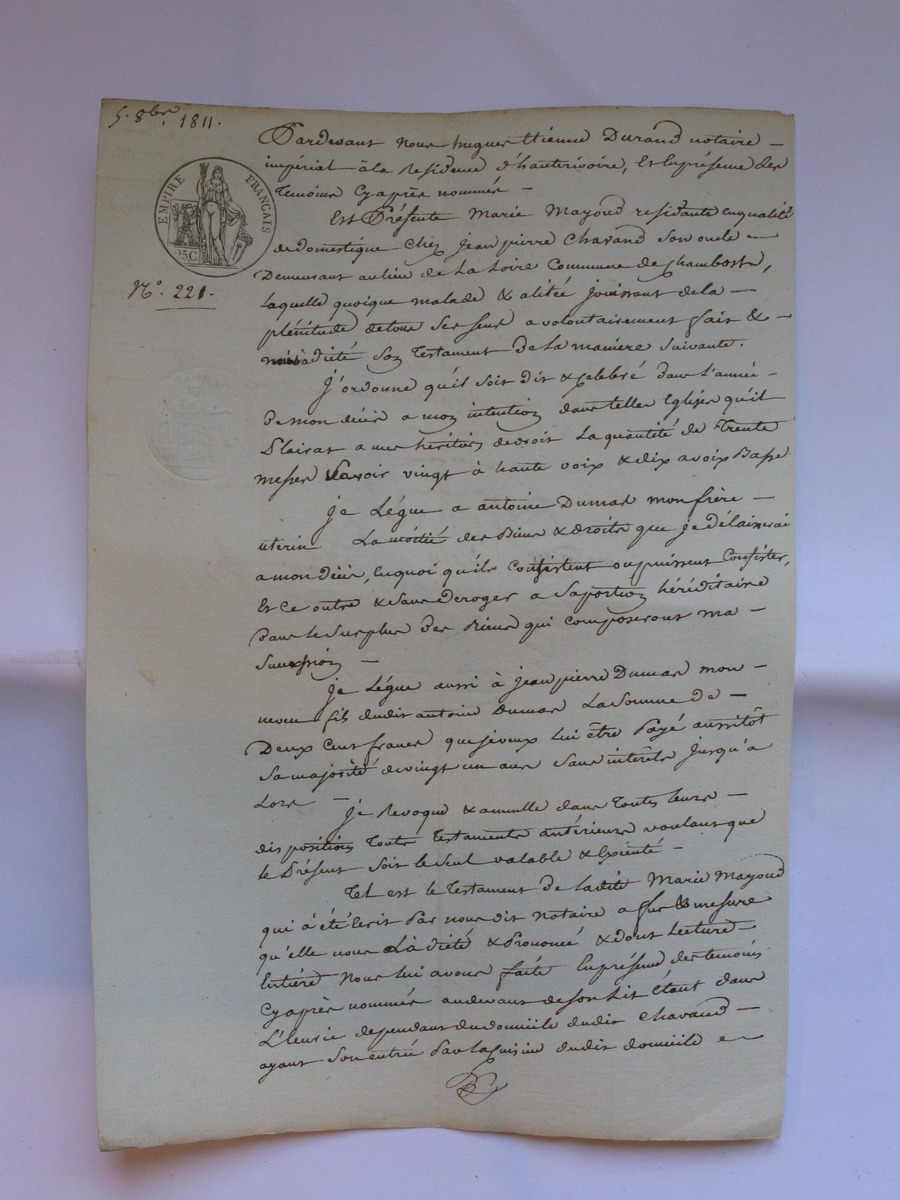 5. 8bre. 1811.
EMPIRE FRANÇAIS
25.C
N°. 221.
Pardevant nous hugues Etienne Durand notaire
impérial à la Residence d'hauterivoire, et En présence des
Temoins Cyaprès nommés
Est Présente Marie Mayoud residante en qualité
de domestique Chez Jean pierre Chavand son oncle
Demeurant au lieu de La Loire Commune de Chambost,
laquelle quoique malade & alitée jouissant de la
plénitude de tous ses sens a volontairement fait &
à dicté son Testament de la maniere suivante.
J'ordonne qu'il soit dit & Celebré dans l'année
de mon décès a mon intention dans telles Eglises qu'il
Plairat a mes héritiers de droit la quantité de Trente
messes savoir vingt à haute voix & dix a voix Basse
je Légue a antoine Dumas mon frère
uterin La moitié des Biens & droits que je délaisserai
a mon décès, En quoi qu'ils Consistent ou puissent Consister,
Et Ce outre & sans deroger a sa portion héréditaire
dans le surplus des Biens qui composeront ma
succession
je Légue aussi à jean pierre Dumas mon
neveu fils dudit antoine Dumas La somme de
Deux Cent francs que je veux lui être Payé aussitôt
sa majorité de vingt un ans sans intérêts jusqu'a
Lors
Je Revoque & annulle dans Toutes leurs
dispositions Touts Testaments antérieurs voulant que
le Présent soit le seul valable & Exécuté
Tel est le Testament de ladite Marie Mayoud
qui à été Ecrit Par nous dit notaire a fur & mesure
qu'elle nous La dicté & Prononcé & dont Lecture
Entière nous lui avons faite En présence des temoins
Cyaprès nommés audevant de son lit Etant dans
L'Ecurie dependant du domicile dudit Chavand
ayant son entrée Par la Cuisine dudit domicile